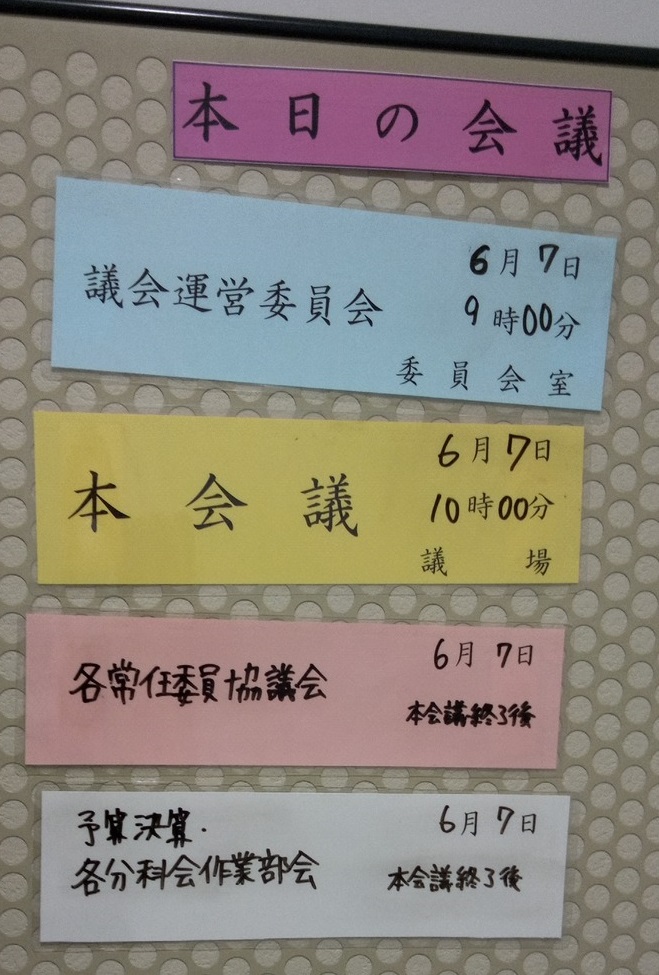 本日の会議
議会運営委員会
6月7日
9時00分
委員会室
本会議
6月7日
10時00分
議場
各常任委員協議会
6月7日
本会議終了後
予算決算・
各分科会作業部会
6月7日
本会議終了後